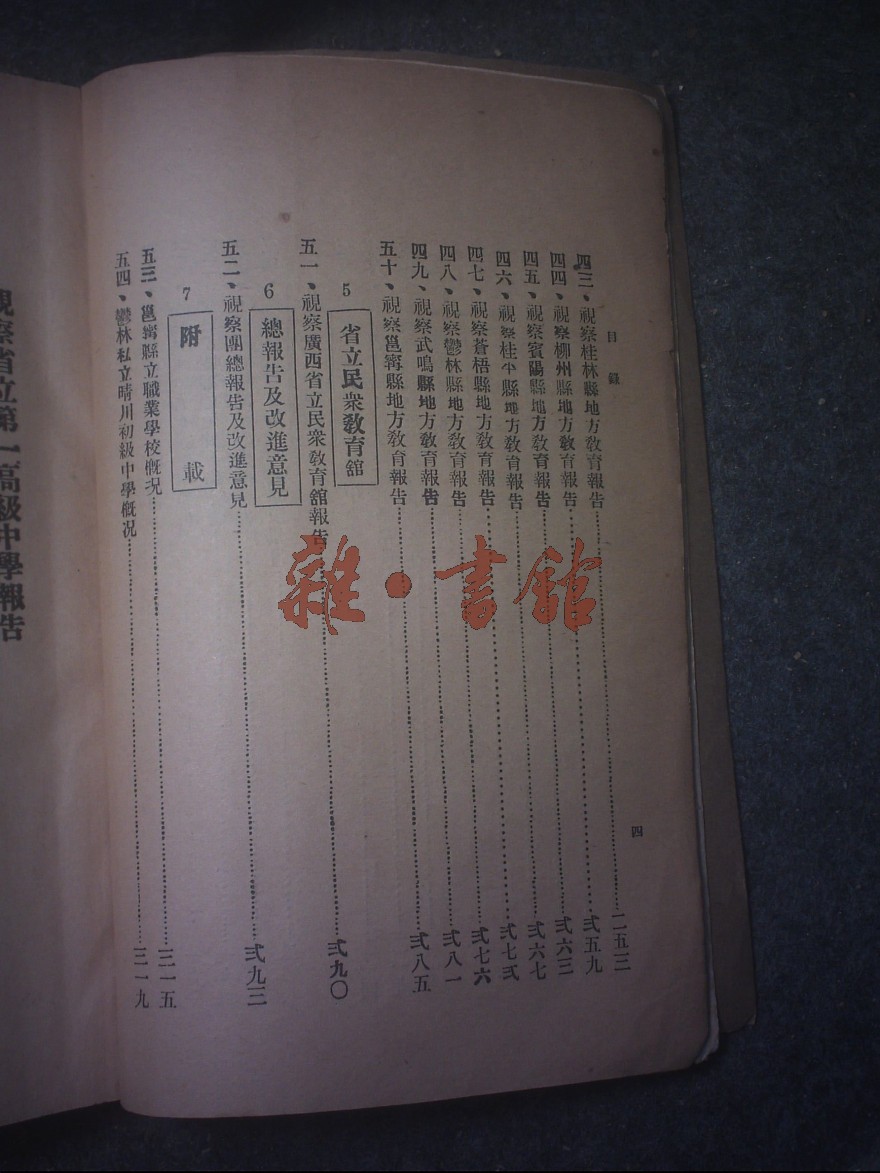 目錄
四
四三、視察桂林縣地方教育報告…………二五三
四四、視察柳州縣地方教育報告…………弍五九
四五、視察賓陽縣地方教育報告…………弍六三
四六、視察桂平縣地方教育報告…………弍六七
四七、視察蒼梧縣地方教育報告…………弍七弍
四八、視察鬱林縣地方教育報告…………弍七六
四九、視察武鳴縣地方教育報告…………弍八一
五十、視察邕寧縣地方教育報告…………弍八五
5 省立民衆教育舘
五一、視察廣西省立民衆教育舘報告…………弍九〇
6 總報告及改進意見
五二、視察團總報告及改進意見…………弍九三
7 附載
五三、邕寧縣立職業學校概况…………三一五
五四、鬱林私立晴川初級中學概况…………三一九
視察省立第一高級中學報告
雜·書館